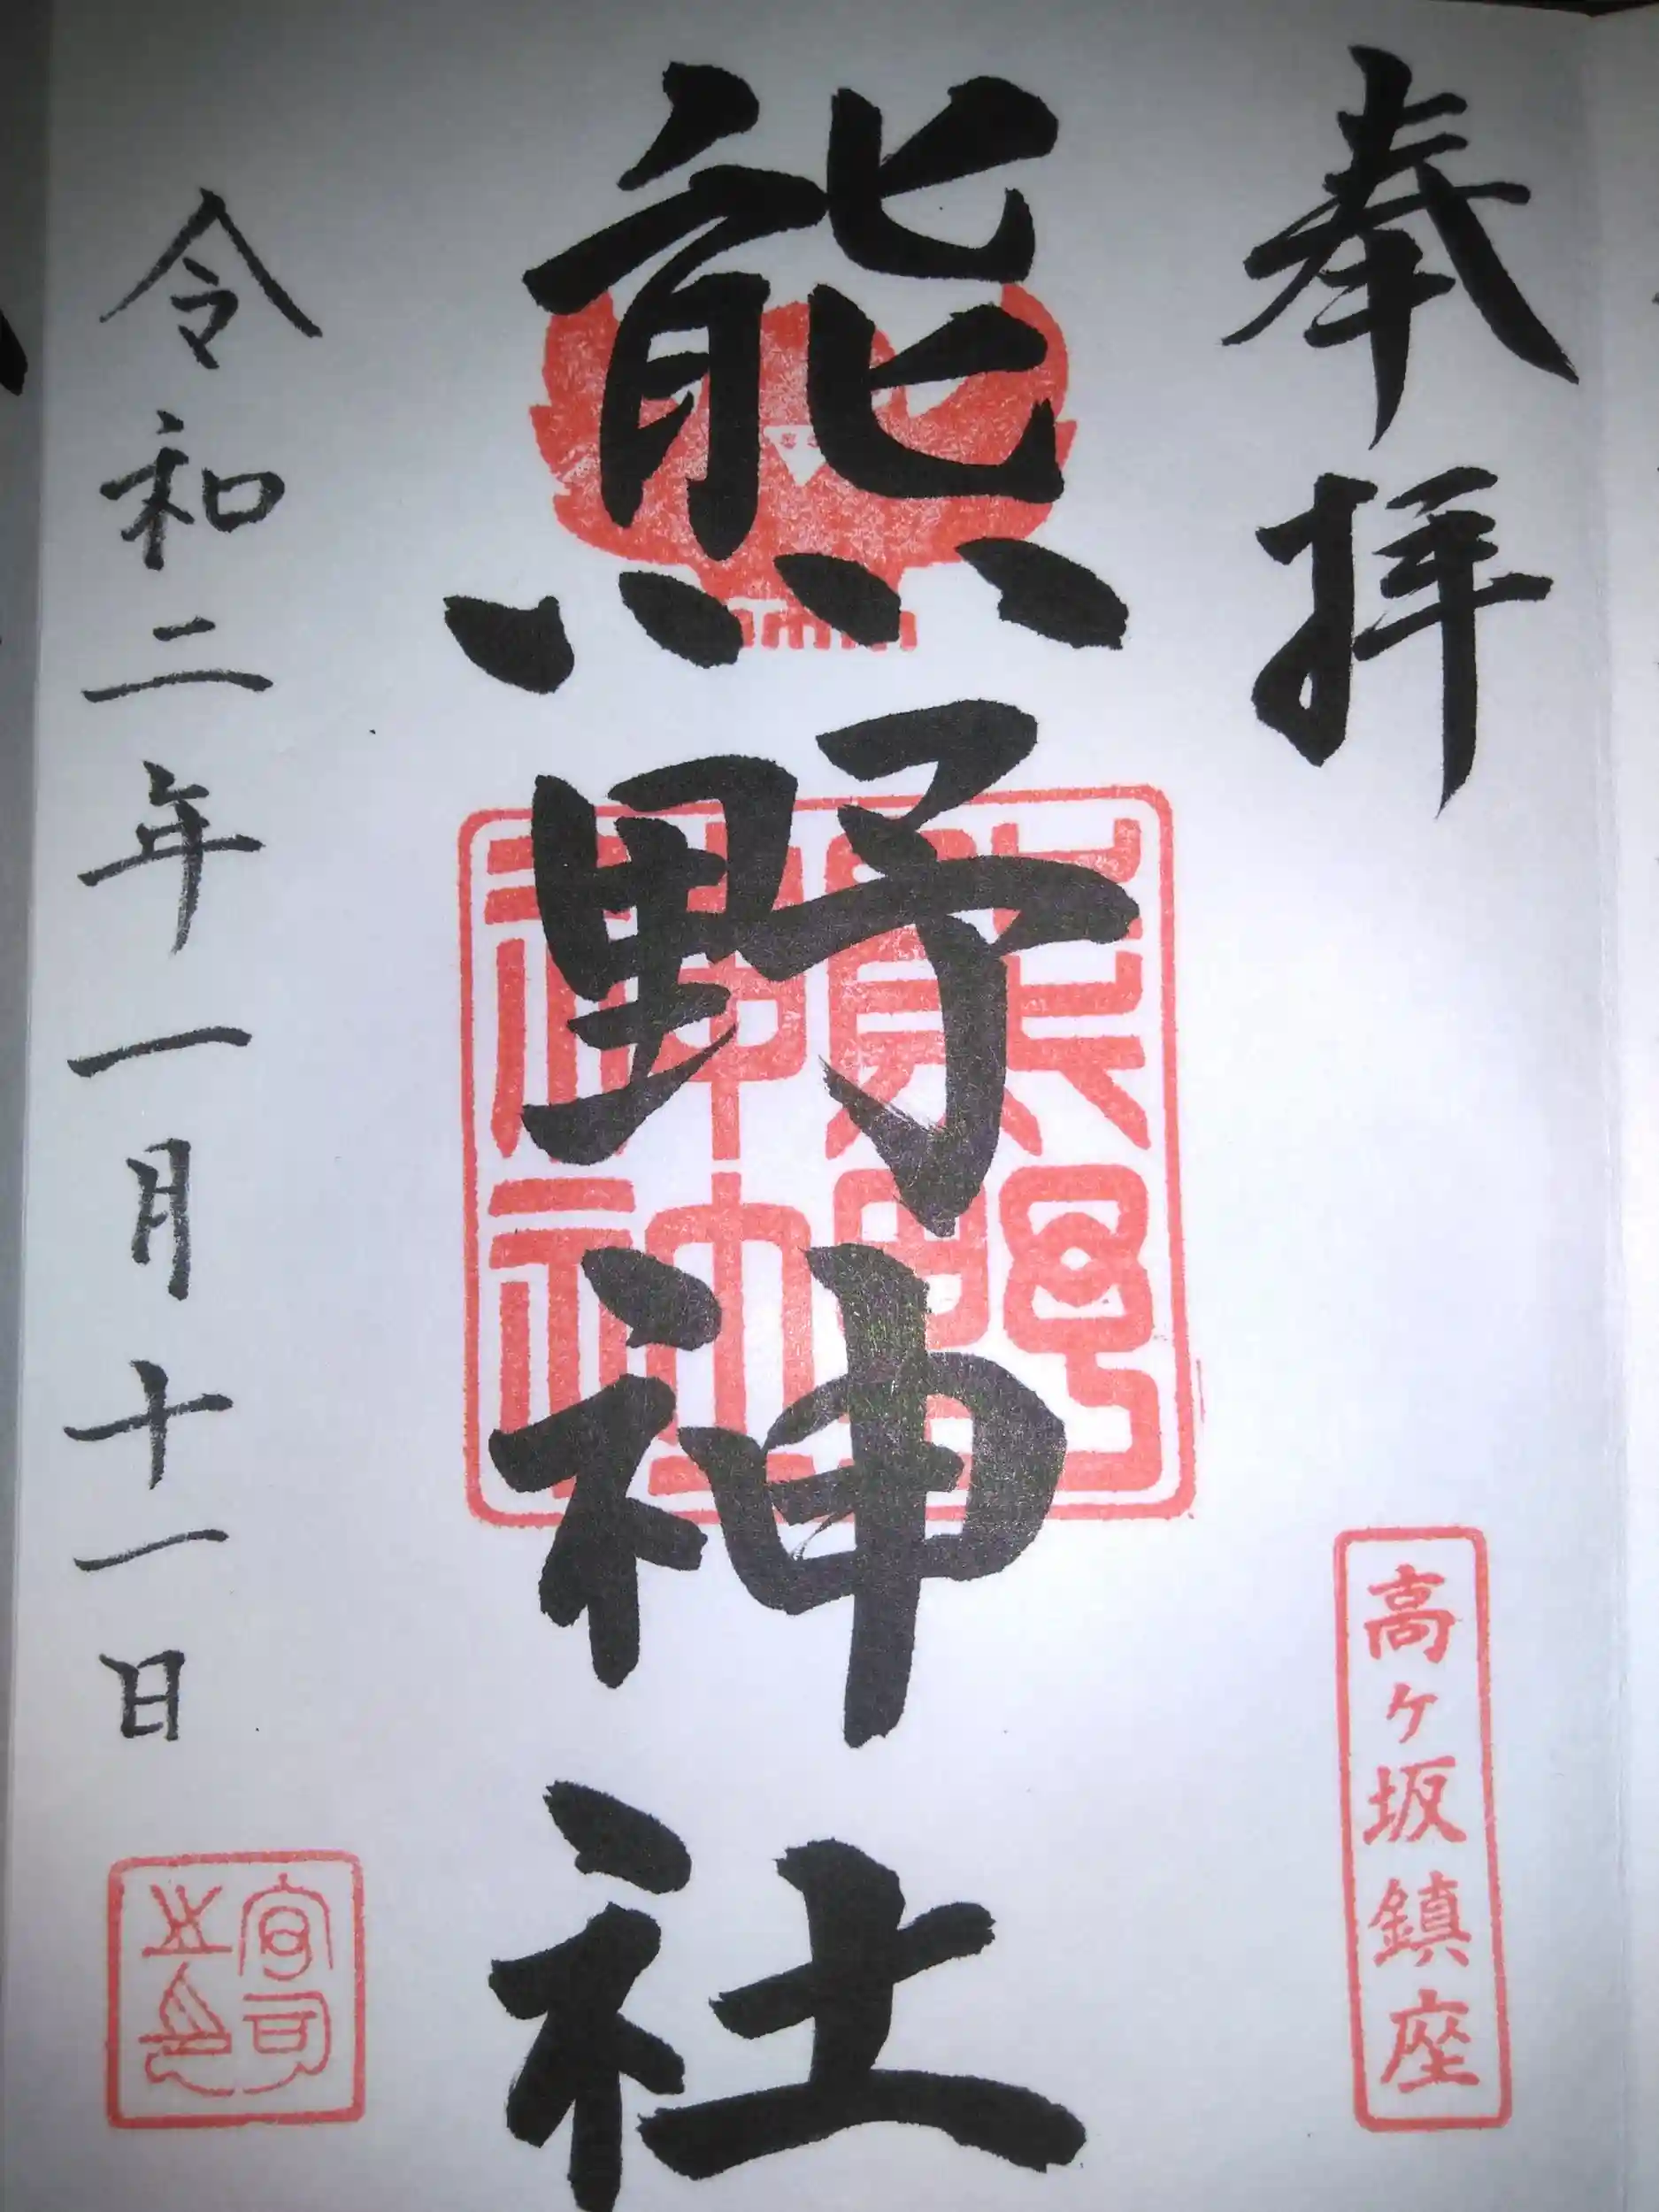 奉拝
高ヶ坂鎮座
熊野神社
熊野神社
令和二年一月十一日
宮司之印